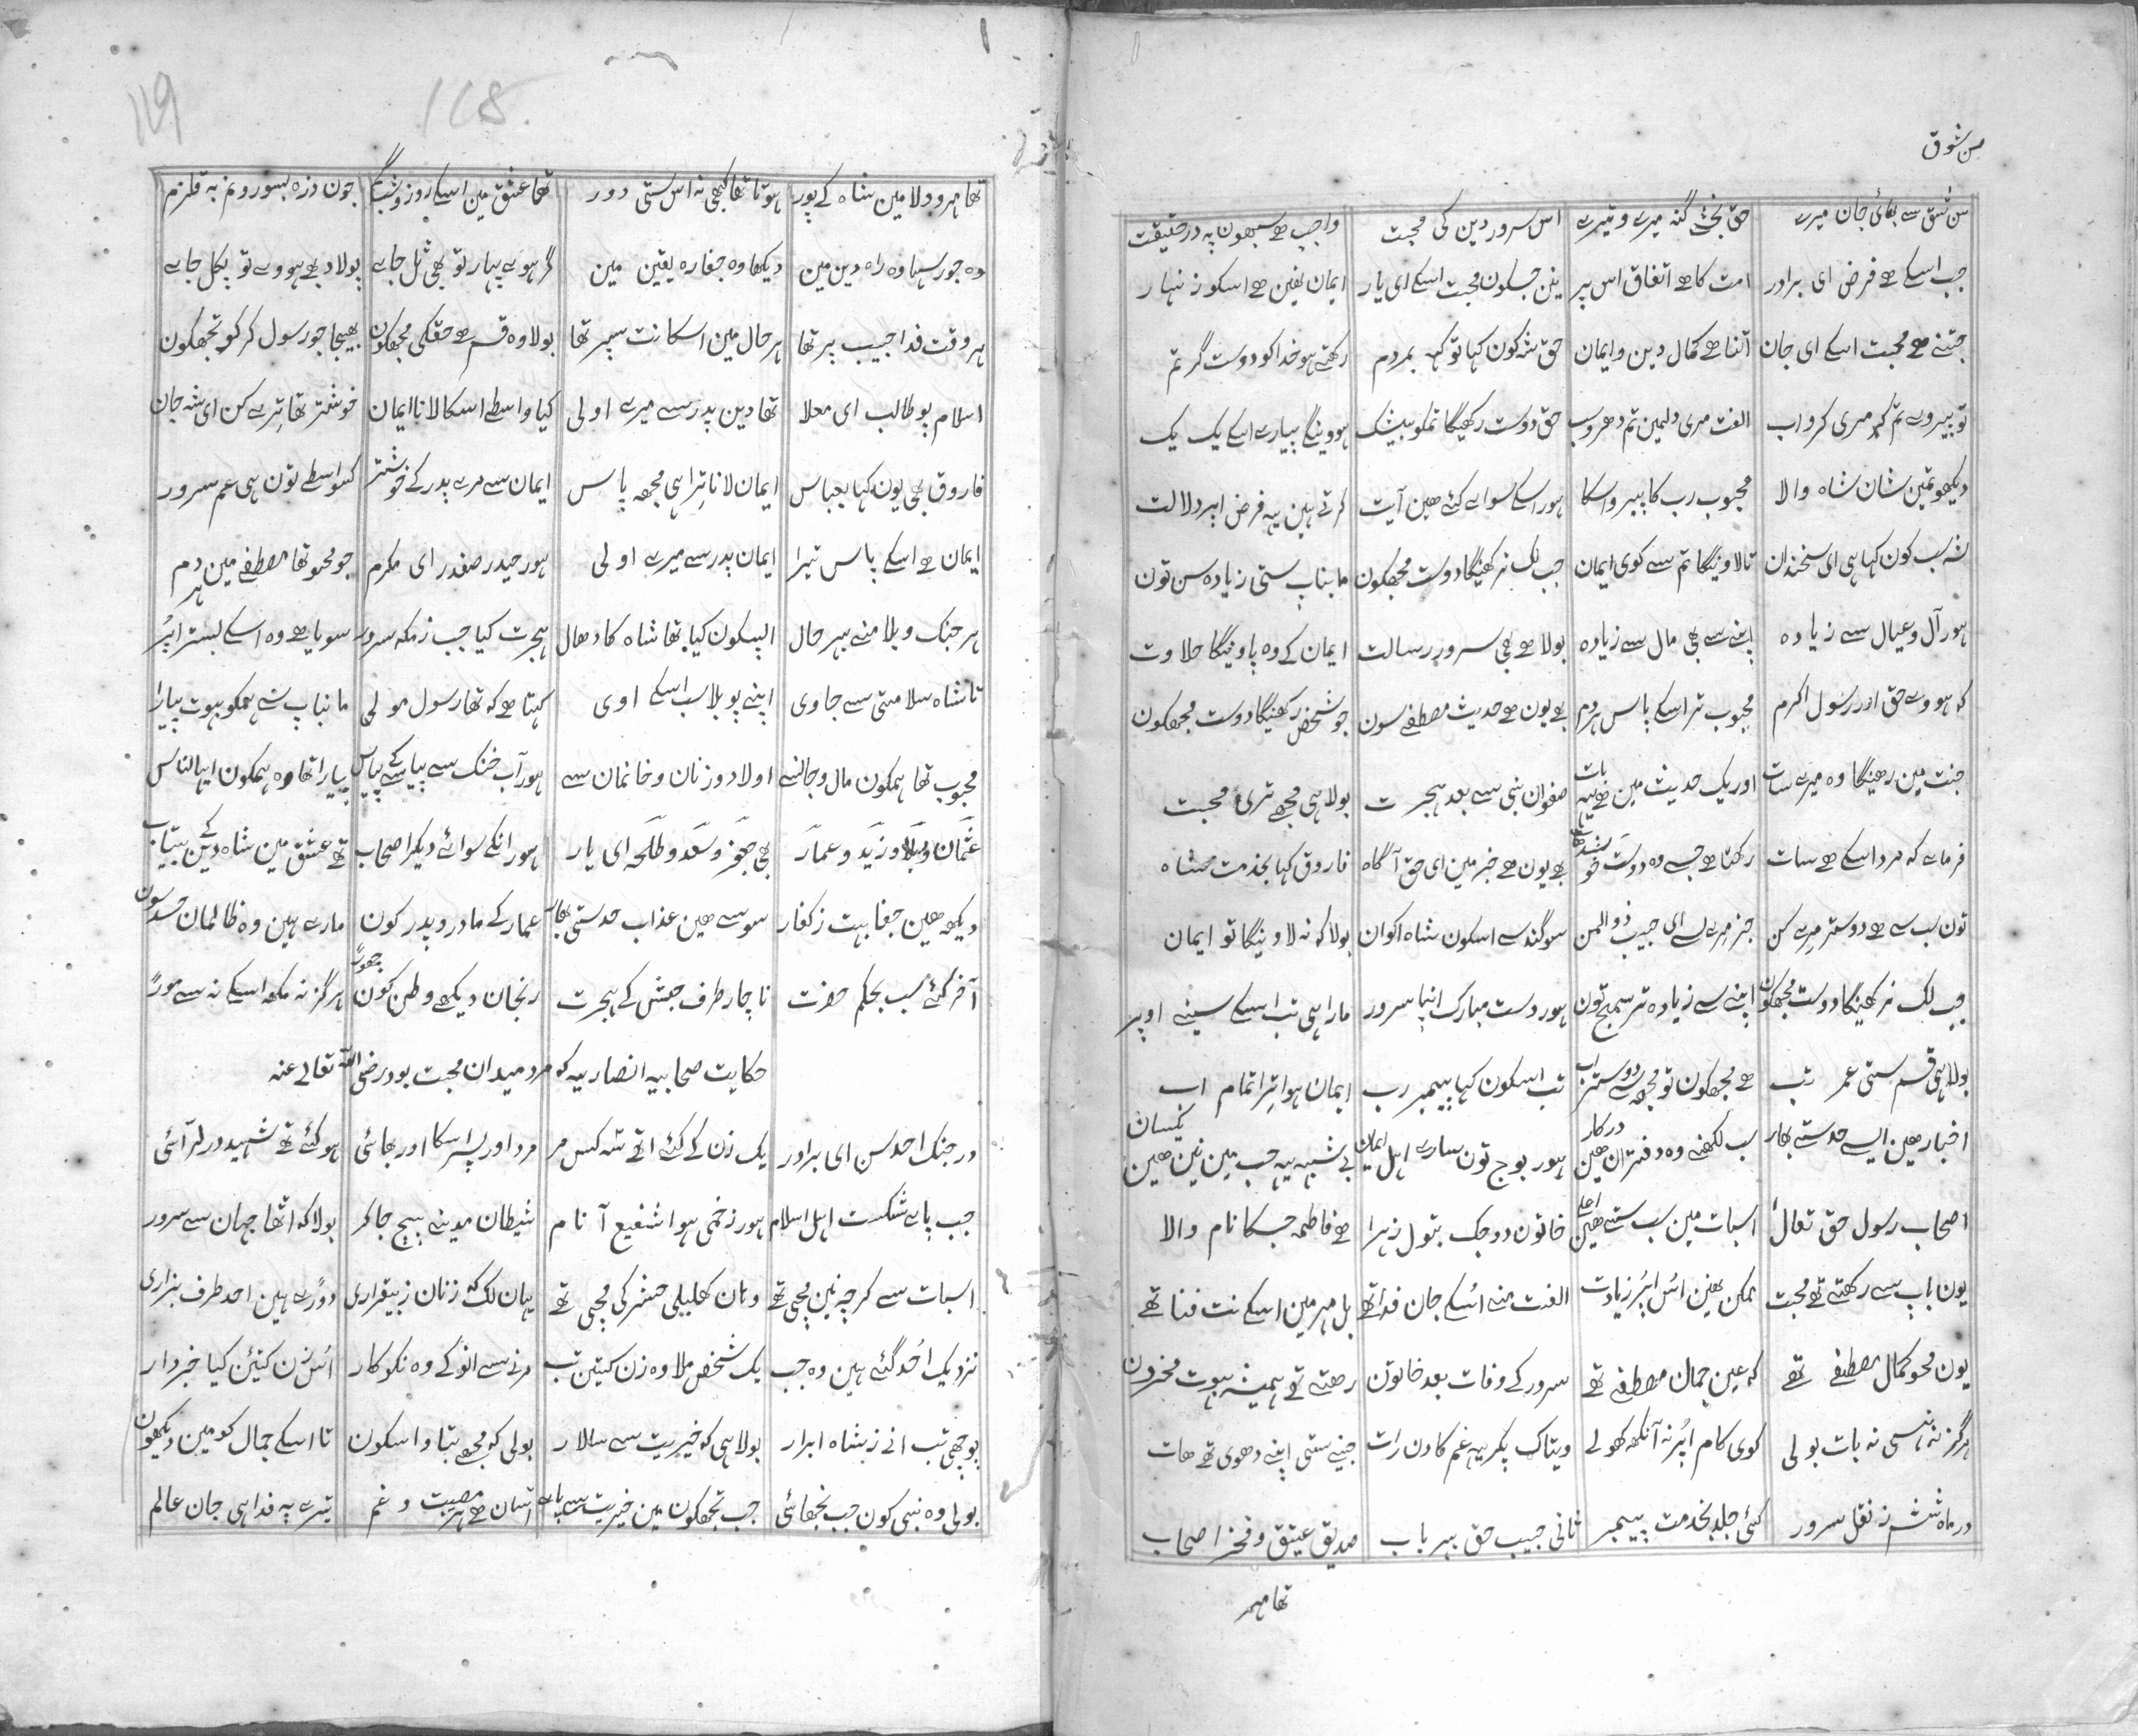 من شوق
سن شوق سے بھائی جان میرے حق بخشے گنہ میرے و تیرے اس سرور دین کی محبت واجب ہے سبھون پہ در حقیقت
جب اسکے ہے فرض ای برادر امت کا ہے اتفاق اس پر نین جسکون محبت اسکے ای یار ایمان نھین ہے اسکو زنہار
جتنے ہے محبت اسکے ای جان اتنا ہے کمال دین و ایمان حق شہ کون کہا تو کہہ بمردم رکھتے ہو خدا کو دوست گر تم
تو پیروے تم مری کرو اب الفت مری دلمین تم دھرو سب حق دوست رکھیگا تمکو بیشک ہووینگے پیارے اسکے یک یک
دیکھو تمین شان شاہ والا محبوب رب کا پیرو اسکا ہور اسکے سواے کئے ھین آیت کرتے ہین یہ فرض اپر دلالت
شہ سب کون کہا ہی ای سخندان تالاوینگا تم سے کوی ایمان جب لک نرکھیگا دوست مجھکون مابناپ ستی زیادہ سن تون
ہور آل و عیال سے زیادہ اپنے سے بھی مال سے زیادہ بولا ہے بھی سرور رسالت ایمان کے وہ پاوینگا حلاوت
کہ ہووے حق اور رسول اکرم محبوب تر اسکے پاس ہردم ہے یون ہے حدیث مصطفے سون جو شخص رکھیگا دوست مجھکون
جنت مین رھیگا وہ میرے سات اور یک حدیث مین ہے یہ بات صفوان بنی سے بعد ہجرت بولا ہی مجھے تری محبت
فرمائے کہ مرد اسکے ہے سات رکھتا ہے جسے وہ دوست ہے یون ہے خبر مین ای حق آگاہ فاروق کہا بخدمت شاہ
تون سب سے ہے دوستر مرے کن جز میرے ای حبیب ذوالمن سوگند سے اسکون شاہ اکوان بولا کہ نہ لاوینگا تو ایمان
جب لک نرکھیگا دوست مجھکون اپنے سے زیادہ تر سمج تون ہور دست مبارک اپنا سرور مارا ہی تب اسکے سینے اوپر
بولا ہی قسم ستی عمر تب ہے مجھکون تو مجھ سے دوستر اب تب اسکون کہا پیمبر رب ایمان ہوا ترا تمام اب
اخبار ھین ایسے حد ستے بھار سب لکھنے وہ دفتران ھین درکار ہور بوج تون سارے اہل ایمان بے شبہہ یہ حب مین نین ھین یکسان
اصحاب رسول حق تعالیٰ اسبات مین سب ستے ھین اعلے خاتون دو جک بتول زہرا ہے فاطمہ جسکا نام والا
یون باپ سے رکھتے تھے محبت ممکن نھین اس اپر زیادت الفت منے اسکے جان فدا تھے بل مہر مین اسکے نت فنا تھے
یون محو کمال مصطفے تھے کہ عین جمال مصطفے تھے سرور کے وفات بعد خاتون رھتے تھے ہمیشہ بہوت محزون
ہرگز نہ ہنسی نہ بات بولی کوی کام اپر نہ آنکھ کھولے ویتاک پکر یہ غم کا دن رات جینے ستی اپنے دھوی تھے ھات
در ماہ ششم ز نقل سرور کئی جلد بخدمت پیمبر ثانی حبیب حق بہر باب صدیق عتیق و فخر اصحاب
تھا مہر
119
118
تھا مہر و ولا مین شاہ کے پور ہوتا تھا کبھی نہ اس ستی دور تھا عشق مین اسکے روز و شب جون ذرہ بسور و نم بہ قلزم
وہ جور سہا وہ راہ دین مین دیکھا وہ جفا رہ یقین مین گر ہوے پہار تو بھی ٹل جاے پولاد بھے ہووے تو پگل جاے
ہر وقت فدا حبیب پر تھا ہر حال مین اسکا نت سپر تھا بولا وہ قسم ہے حقکی مجھکون بھیجا جو رسول کر کو تجھکون
اسلام بو طالب ای معلا تھا دین پدر سے میرے اولی کیا واسطے اسکا لانا ایمان خوشتر تھا ترے کن ای شہ جان
فاروق بھی یون کہا بعباس ایمان لانا ترا ہی مجھ پاس ایمان سے مرے پدر کے خوشتر کسواسطے تون ہی عم سرور
ایمان ہے اسکے پاس تیرا ایمان پدر سے میرے اولی ہور حیدر صفدر ای مکرم جو محو تھا مصطفے مین ہر دم
ہر جنک و بلا منے بہر حال اپسکون کیا تھا شاہ کا دھال ہجرت کیا جب ز مکہ سرور سویا ہے وہ اسکے بستر اپر
تا شاہ سلامتی سے جاوی اپنے پو بلا سب اسکے اوی کہتا ہے کہ تھا رسول مولی مانباپ سے ہمکو بہوت پیارا
محبوب تھا ہمکون مال و جانسے اولاد و زنان و خانمان سے ہور آب خنک سے پیاسے کے پاس پیارا تھا وہ ہمکون ایہا الناس
عثمان و بلال و زید و عمار بھی جعفر و سعد و طلحہ ای یار ہور انکے سوائے دیگر اصحاب تھے عشق مین شاہ دین کے بیتاب
دیکھے ھین جفا بہت ز کفار سوسے ھین عذاب حد ستی بھار عمار کے مادر و پدر کون مارے ہین وہ ظالمان حسد سون
آخر گئے سب بحکم حضرت ناچار طرف حبش کے ہجرت رنجان دیکھے وطن کون چھور ہرگز نہ مکھ اسکے نہ سے مور
حکایت صحابیہ انصاریہ کہ مرد میدان محبت بود رضی اللہ تعالے عنہ
در جنک احد سن ای برادر یک زن کے گئے اتھے شہ کس مر مرد اور پسر اسکا اور بھائی ہو گئے تھے شہید در لرائی
جب پاے شکست اہل اسلام ہور زخمی ہوا شفیع آنام شیطان مدینے بیچ جاکر بولا کہ اٹھا جہان سے سرور
اسبات سے گرچہ نین مچی تھے وہان کھلبلی حشر کی مچی تھے یہان لک کہ زنان ز بیقراری دوری ہین احد طرف بزاری
نزدیک احد گئے ہین وہ جب یک شخص ملا وہ زن کتین تب مرنے سے انو کے وہ نکوکار اس زن کتین کیا خبردار
پوچھی تب انے ز شاہ ابرار بولا ہی کہ خیریت سے سالار بولی کہ مجھے بتاو اسکون تا اسکے جمال کو مین دیکھون
بولی وہ نبی کون جب نجھائی جب تجھکون مین خیریت سے پاے آسان ہے ہر مصیبت و غم تیرے پہ فدا ہی جان عالم